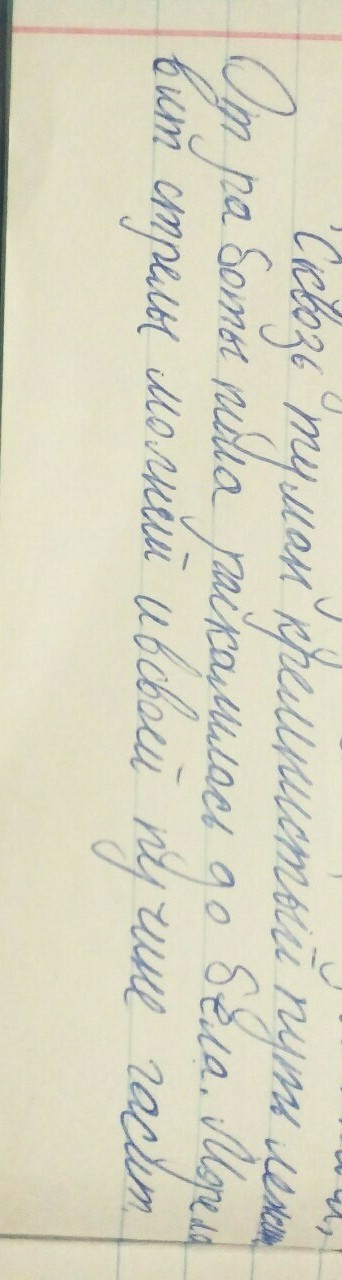 Сквозь туман кремнистый путь лежит
От работы пила раскалилась до бела. Море ло
вит стрелы молний и в своей пучине гасит.